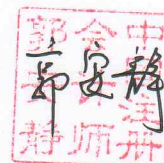 中国注册
会计师
郭安静
郭安静